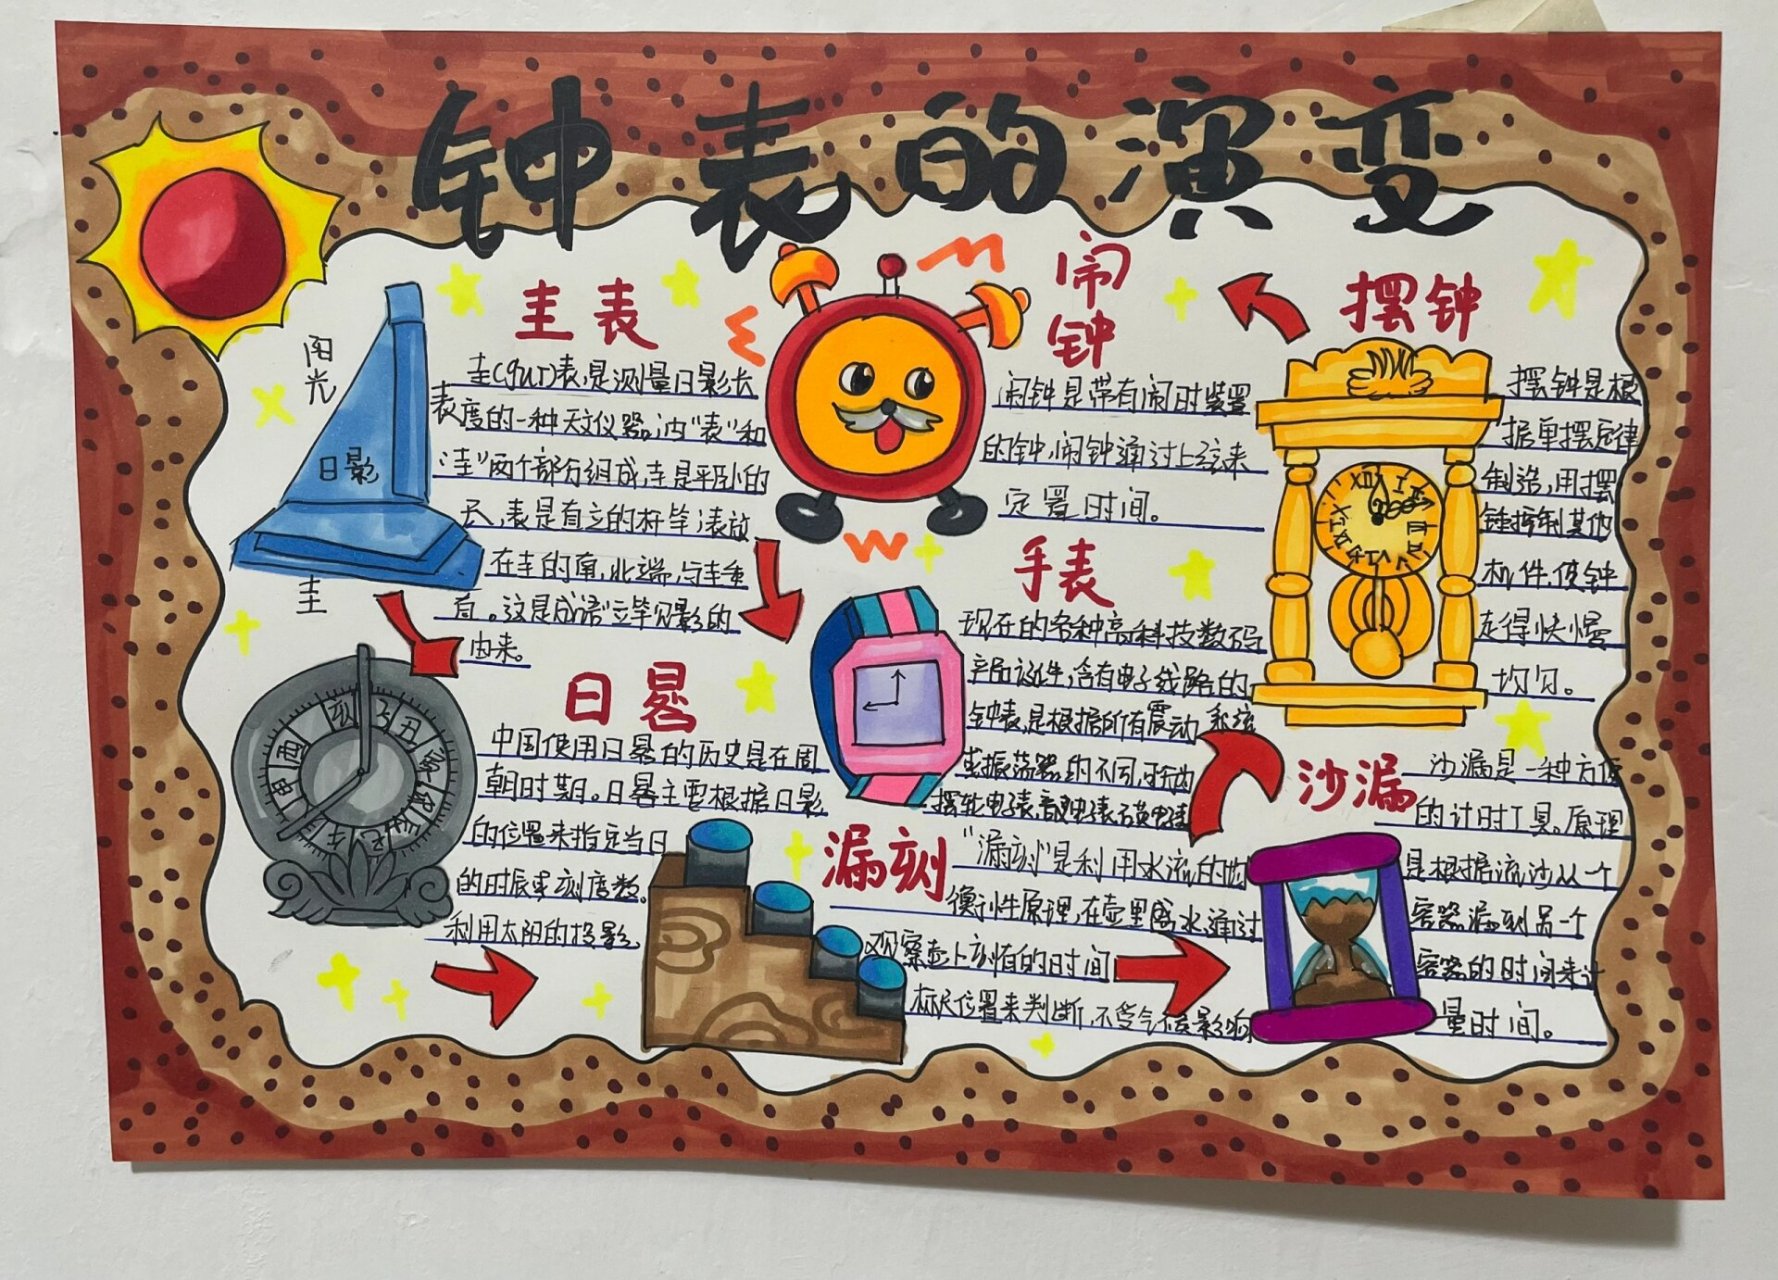 钟表的演变
圭表
圭(guī)表,是测量日影长
表度的一种天文仪器,内"表"和
"圭"两个部分组成,圭是平卧的
尺,表是直立的杆竿,表放
在圭的南,北端,与圭垂
直。这是成语"立竿见影的
由来。
阳光
日影
圭
日晷
中国使用日晷的历史是在周
朝时期。日晷主要根据日影
的位置来指定当日
的时辰或刻度数。
利用太阳的投影
漏刻
"漏刻"是利用水流的均
衡性原理,在壶里盛水,通过
观察壶上刻值的时间
标尺位置来判断,不受气候影响
沙漏
沙漏是一种方便
的计时工具。原理
是根据流沙从一个
容器漏到另一个
容器的时间来计
量时间。
摆钟
摆钟是根
据单摆定律
制造,用摆
锤控制其他
机件,使钟
走得快慢
均匀。
闹钟
闹钟是带有闹时装置
的钟,闹钟通过上弦来
定置时间。
手表
现在的各种高科技数码
产品诞生,含有电子线路的
钟表,是根据所有震动系统
或振荡器的不同,可分为
摆轮电子表,音叉电子表,石英电子表